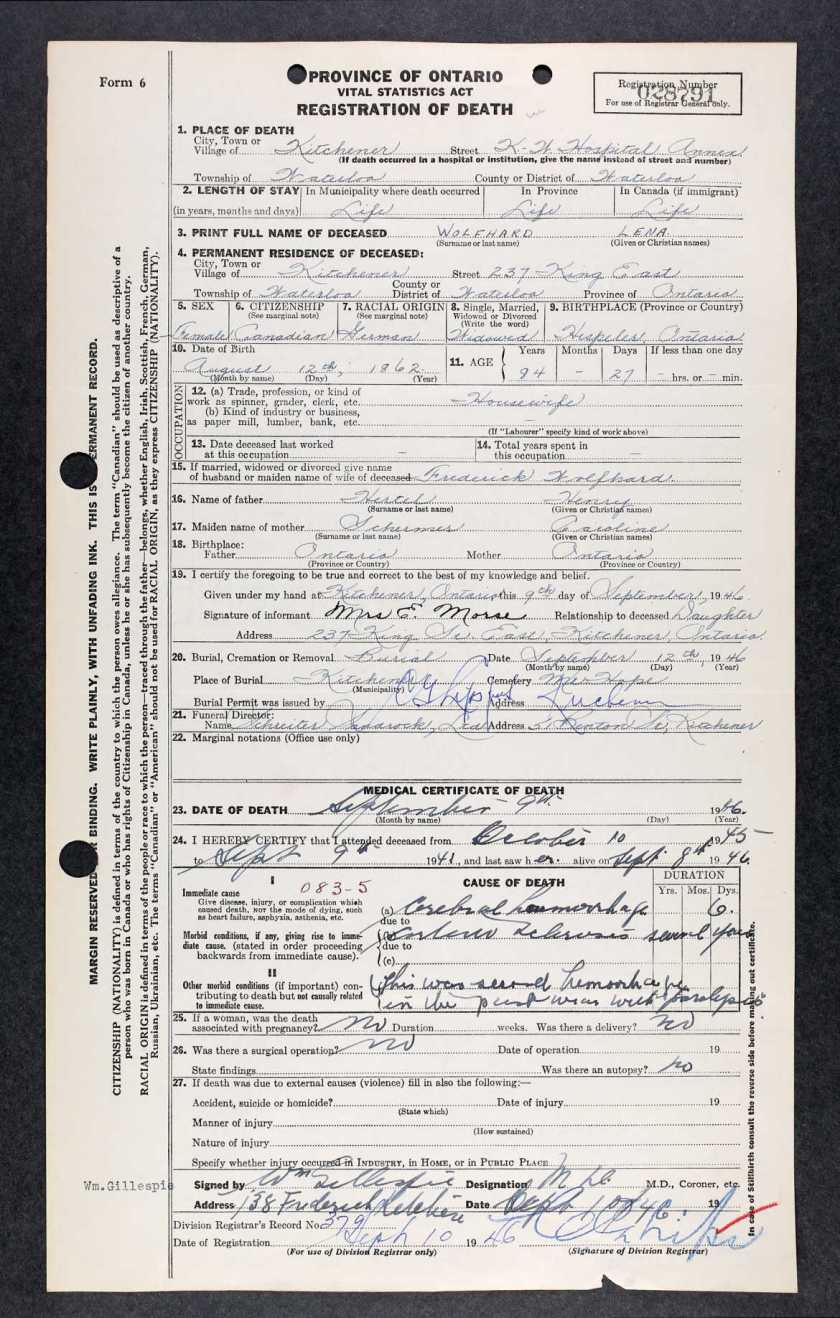 Form 6
PROVINCE OF ONTARIO
VITAL STATISTICS ACT
REGISTRATION OF DEATH
Registration Number
028791
For use of Registrar General only.
1. PLACE OF DEATH
City, Town or
Village of Kitchener Street K-W Hospital Annex
(If death occurred in a hospital or institution, give the name instead of street and number)
Township of Waterloo County or District of Waterloo
2. LENGTH OF STAY In Municipality where death occurred In Province In Canada (if immigrant)
(in years, months and days) Life Life Life
3. PRINT FULL NAME OF DECEASED WOLFHARD LENA
(Surname or last name) (Given or Christian names)
4. PERMANENT RESIDENCE OF DECEASED:
City, Town or
Village of Kitchener Street 237 King East
County or
Township of Waterloo District of Waterloo Province of Ontario
5. SEX 6. CITIZENSHIP 7. RACIAL ORIGIN 8. Single, Married, 9. BIRTHPLACE (Province or Country)
(See marginal note) (See marginal note) Widowed or Divorced
(Write the word)
Female Canadian German Widowed Hespeler, Ontario
10. Date of Birth 11. AGE Years Months Days If less than one day
August 12th, 1862 84 - 27 - hrs. or - min.
(Month by name) (Day) (Year)
OCCUPATION
12. (a) Trade, profession, or kind of
work as spinner, grader, clerk, etc. Housewife
(b) Kind of industry or business,
as paper mill, lumber, bank, etc. -
(If "Labourer" specify kind of work above)
13. Date deceased last worked 14. Total years spent in
at this occupation - this occupation -
15. If married, widowed or divorced give name
of husband or maiden name of wife of deceased Frederick Wolfhard
16. Name of father Hertel Henry
(Surname or last name) (Given or Christian names)
17. Maiden name of mother Schermer Caroline
(Surname or last name) (Given or Christian names)
18. Birthplace:
Father Ontario Mother Ontario
(Province or Country) (Province or Country)
19. I certify the foregoing to be true and correct to the best of my knowledge and belief.
Given under my hand at Kitchener, Ontario this 9th day of September, 1946
Signature of informant Mrs E. Morse Relationship to deceased Daughter
Address 237 King St. East, Kitchener, Ontario
20. Burial, Cremation or Removal Burial Date September 12th, 1946
(Month by name) (Day) (Year)
Place of Burial Kitchener Cemetery Mt. Hope
(Municipality)
Burial Permit was issued by Address
21. Funeral Director:
Name Schreiter Sandrock, Ltd Address 51 Benton St, Kitchener
22. Marginal notations (Office use only)
MEDICAL CERTIFICATE OF DEATH
23. DATE OF DEATH September 9th 1946.
(Month by name) (Day) (Year)
24. I HEREBY CERTIFY that I attended deceased from October 10 1945
to Sept 9th 194 , and last saw her alive on Sept 8th 1946.
I CAUSE OF DEATH DURATION
083-5 Yrs. Mos. Dys.
Immediate cause
Give disease, injury, or complication which
caused death, NOT the mode of dying, such
as heart failure, asphyxia, asthenia, etc.
(a) Cerebral hemorrhage 6.
due to
Morbid conditions, if any, giving rise to immediate cause. (stated in order proceeding
backwards from immediate cause).
(b) sclerosis several years
due to
(c)
II
Other morbid conditions (if important) contributing to death but not causally related
to immediate cause.
This was second hemorrhage
in the past year with paralysis
25. If a woman, was the death
associated with pregnancy? No Duration weeks. Was there a delivery? No
26. Was there a surgical operation? No Date of operation 19
State findings Was there an autopsy? no
27. If death was due to external causes (violence) fill in also the following:—
Accident, suicide or homicide? Date of injury 19
(State which)
Manner of injury
(How sustained)
Nature of injury
Specify whether injury occurred in INDUSTRY, in HOME, or in PUBLIC PLACE
Wm.Gillespie
Signed by Wm Gillespie Designation M.D. M.D., Coroner, etc.
Address 138 Frederick Kitchener Date Sept 10 46. 19
Division Registrar's Record No. 379
Date of Registration Sept 10 1946
(For use of Division Registrar only) (Signature of Division Registrar)
MARGIN RESERVED FOR BINDING. WRITE PLAINLY, WITH UNFADING INK. THIS IS PERMANENT RECORD.
CITIZENSHIP (NATIONALITY) is defined in terms of the country to which the person owes allegiance. The term "Canadian" should be used as descriptive of a
person who was born in Canada or who has rights of Citizenship in Canada, unless he or she has subsequently become the citizen of another country.
RACIAL ORIGIN is defined in terms of the people or race to which the person—traced through the father—belongs, whether English, Irish, Scottish, French, German,
Russian, Ukrainian, etc. The terms "Canadian" or "American" should not be used for RACIAL ORIGIN, as they express CITIZENSHIP (NATIONALITY).
In case of Stillbirth consult the reverse side before making out certificate.